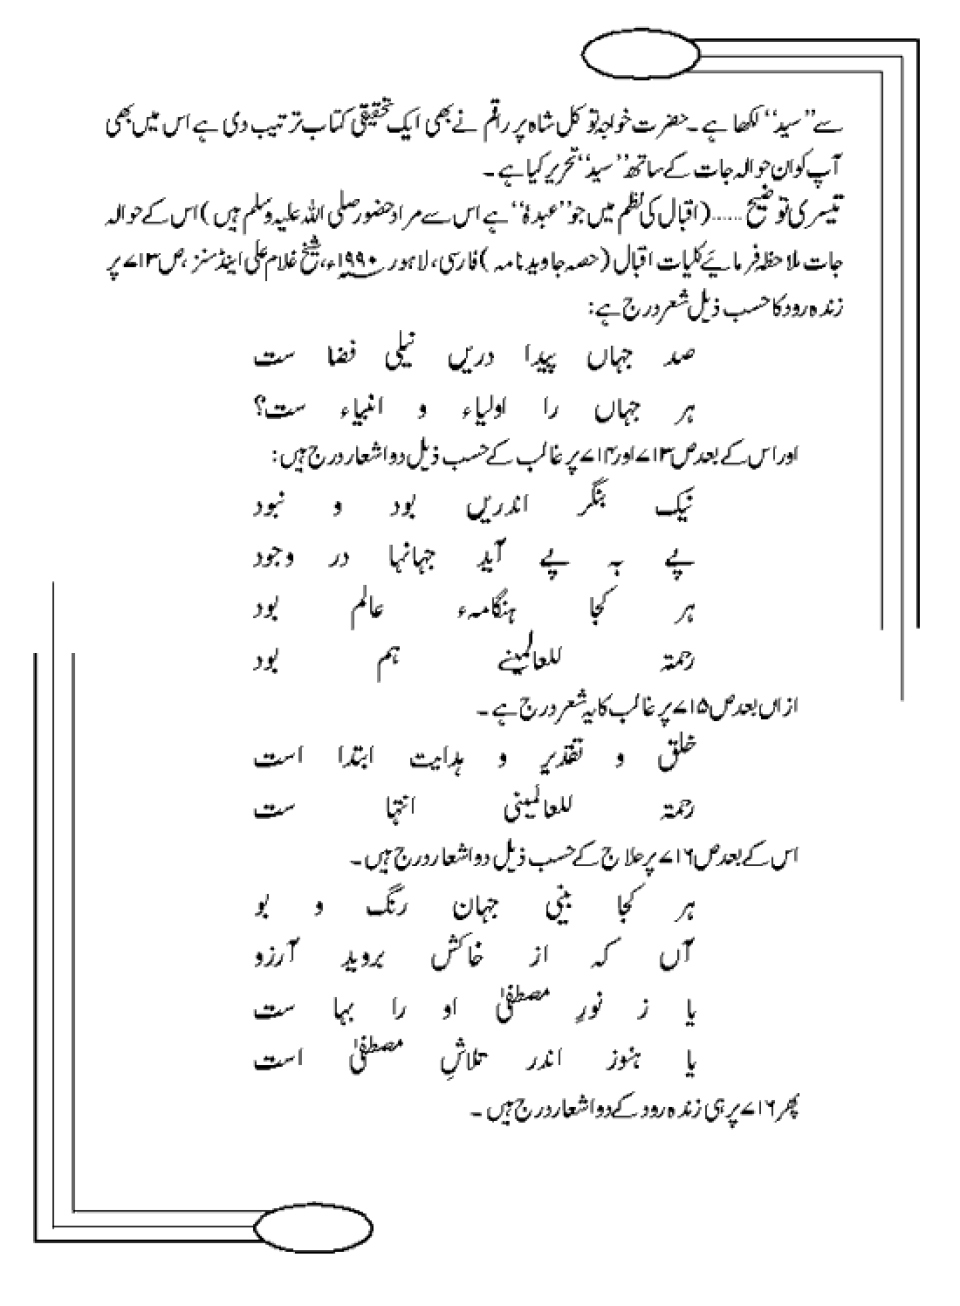 سے ”سید“ لکھا ہے۔ حضرت خواجہ توکل شاہ پر راقم نے بھی ایک تحقیقی کتاب ترتیب دی ہے اس میں بھی
آپ کو ان حوالہ جات کے ساتھ ”سید“ تحریر کیا ہے۔
تیسری توضیح ...... (اقبال کی نظم میں جو ”عبدہٗ“ ہے اس سے مراد حضور صلی اللہ علیہ وسلم ہیں) اس کے حوالہ
جات ملاحظہ فرمائیے کلیات اقبال (حصہ جاوید نامہ) فارسی، لاہور ۱۹۹۰ء، شیخ غلام علی اینڈ سنز، ص ۷۱۳ پر
زندہ رود کا حسب ذیل شعر درج ہے:
صد جہاں پیدا دریں نیلی فضا ست
ہر جہاں را اولیاء و انبیاء ست؟
اور اس کے بعد ص ۷۱۳ اور ۷۱۴ پر غالب کے حسب ذیل دو اشعار درج ہیں:
نیک بنگر اندریں بود و نبود
پے بہ پے آید جہانہا در وجود
ہر کجا ہنگامہء عالم بود
رحمتہ للعالمینے ہم بود
ازاں بعد ص ۷۱۵ پر غالب کا یہ شعر درج ہے۔
خلق و تقدیر و ہدایت ابتدا است
رحمتہ للعالمینی انتہا ست
اس کے بعد ص ۷۱۶ پر حلاج کے حسب ذیل دو اشعار درج ہیں۔
ہر کجا بینی جہان رنگ و بو
آں کہ از خاکش بروید آرزو
یا ز نورِ مصطفیٰ او را بہا ست
یا ہنوز اندر تلاشِ مصطفیٰ است
پھر ۷۱۶ پر ہی زندہ رود کے دو اشعار درج ہیں۔